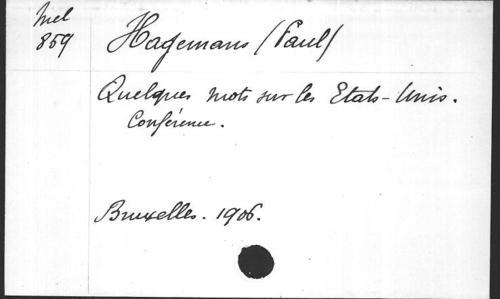 Mel
859
Hagemans (Paul)
Quelques mots sur les Etats-Unis.
Conférence.
Bruxelles. 1906.